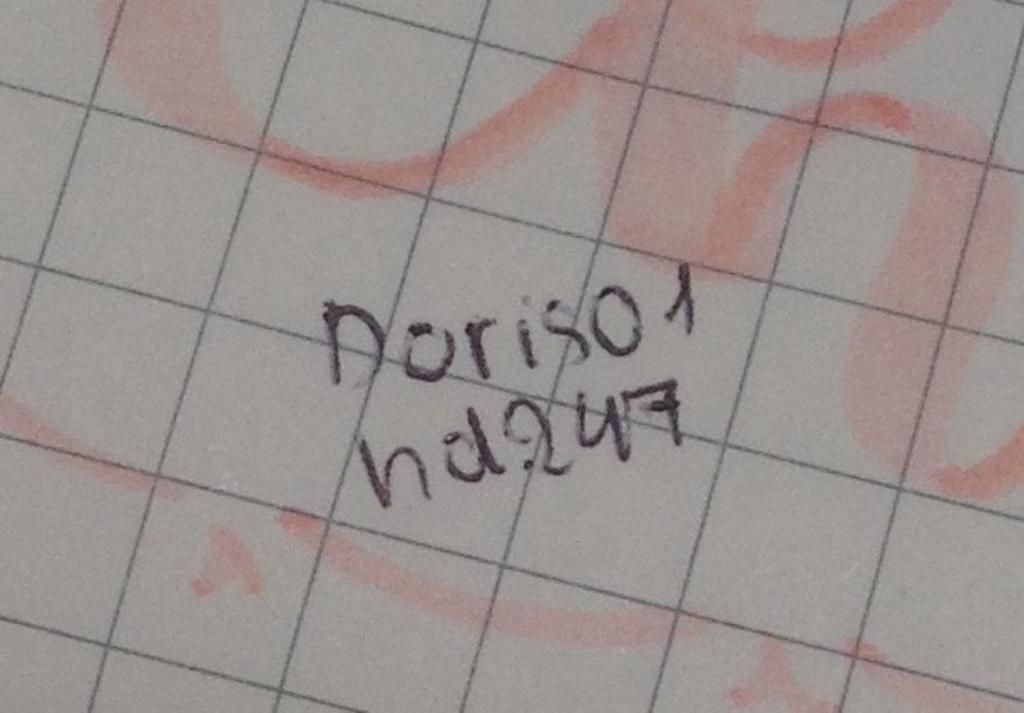 Doris01
hd247